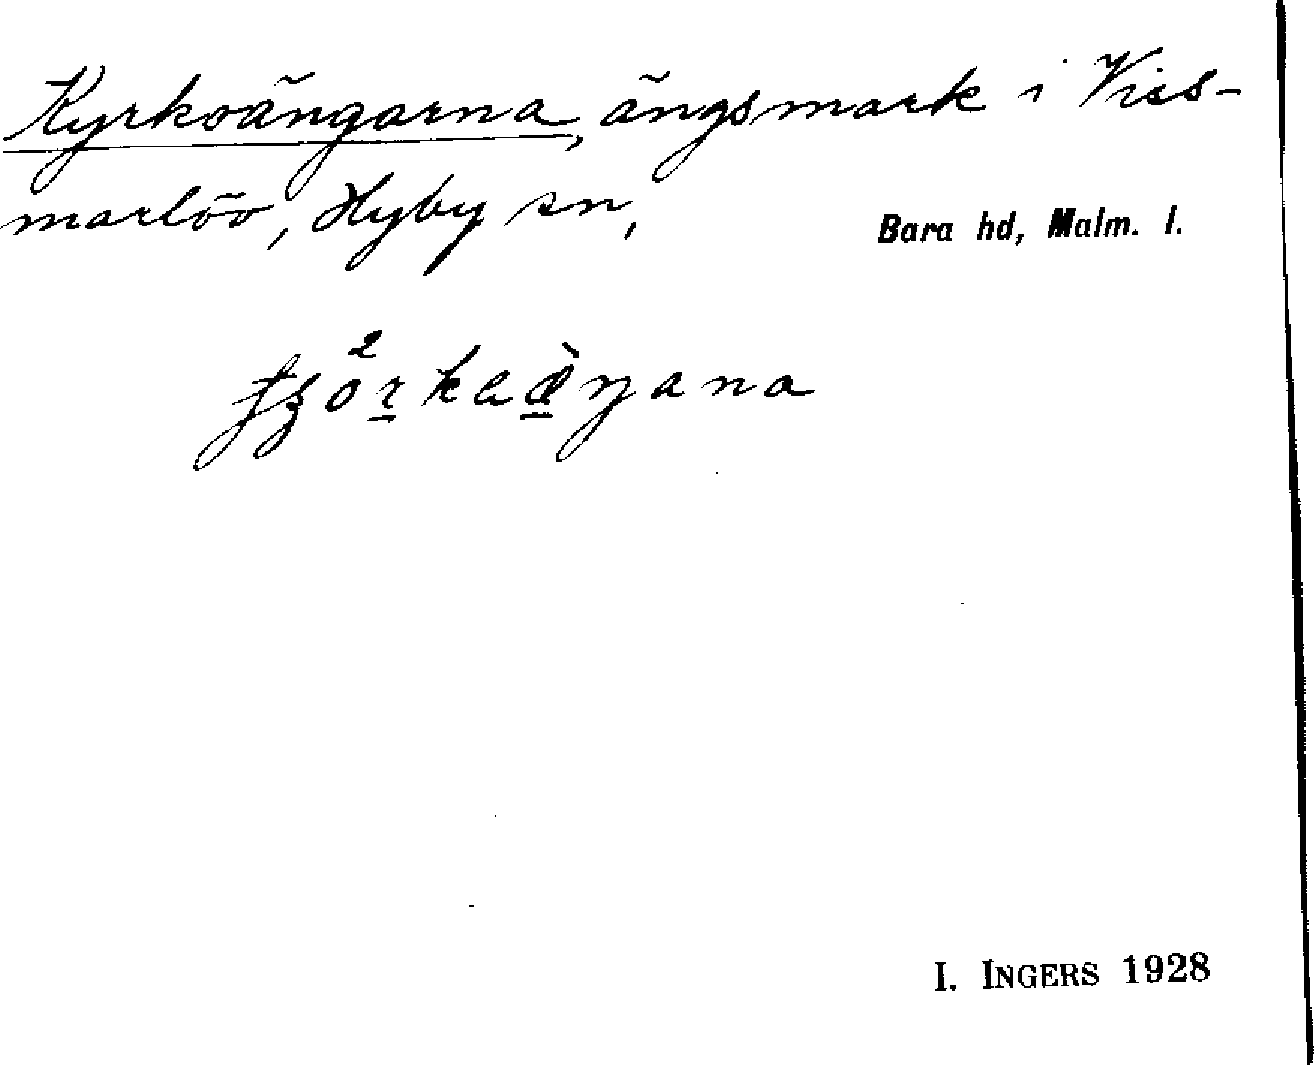 Kyrkoängarna, ängsmark i Viss-
marlöv, Hyby sn, Bara hd, Malm. l.
I. INGERS 1928